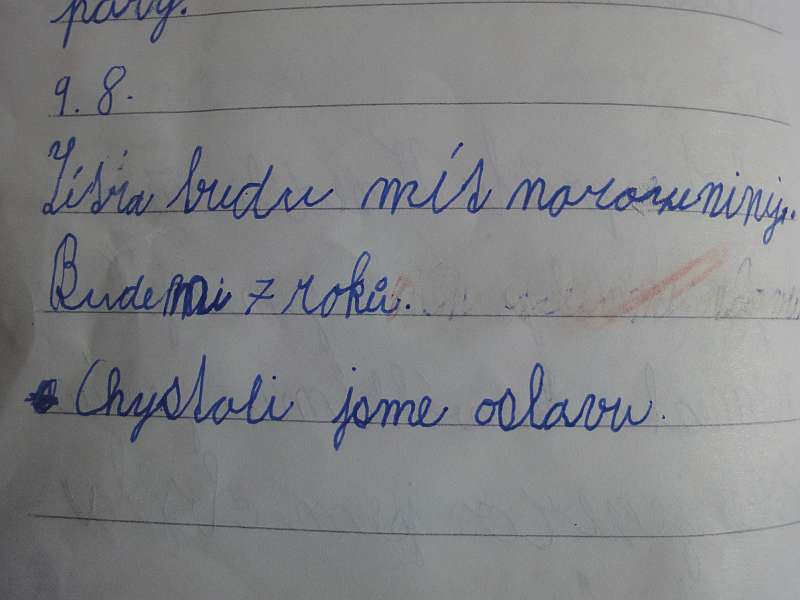 párg.
9. 8.
Zítra budu mít narozeniny.
Bude mi 7 roků.
Chystali jsme oslavu.